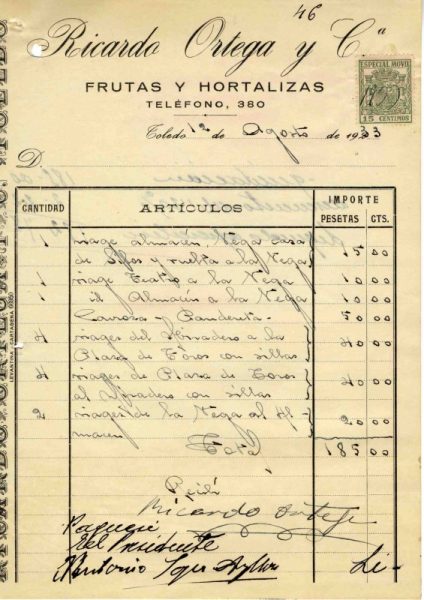 46
Ricardo Ortega y Cª
FRUTAS Y HORTALIZAS
TELÉFONO, 380
ESPECIAL MOVIL
15 CENTIMOS
Toledo 12 de Agosto de 1933
D.
CANTIDAD ARTÍCULOS IMPORTE
PESETAS CTS.
1 viage almacén, Vega casa
de Sijos y vuelta a la Vega 15 00
1 viage Teatro a la Vega 10 00
1 id Almacén a la Vega 10 00
Carroza y Pandereta 50 00
4 viages del Miradero a la
Plaza de Toros con sillas 40 00
4 viages de Plaza de Toros
al Miradero con sillas 40 00
2 viages de la Vega al Al-
macen 20 00
Total 185 00
Recibí
Ricardo Ortega
Páguese
El Presidente
Antonio